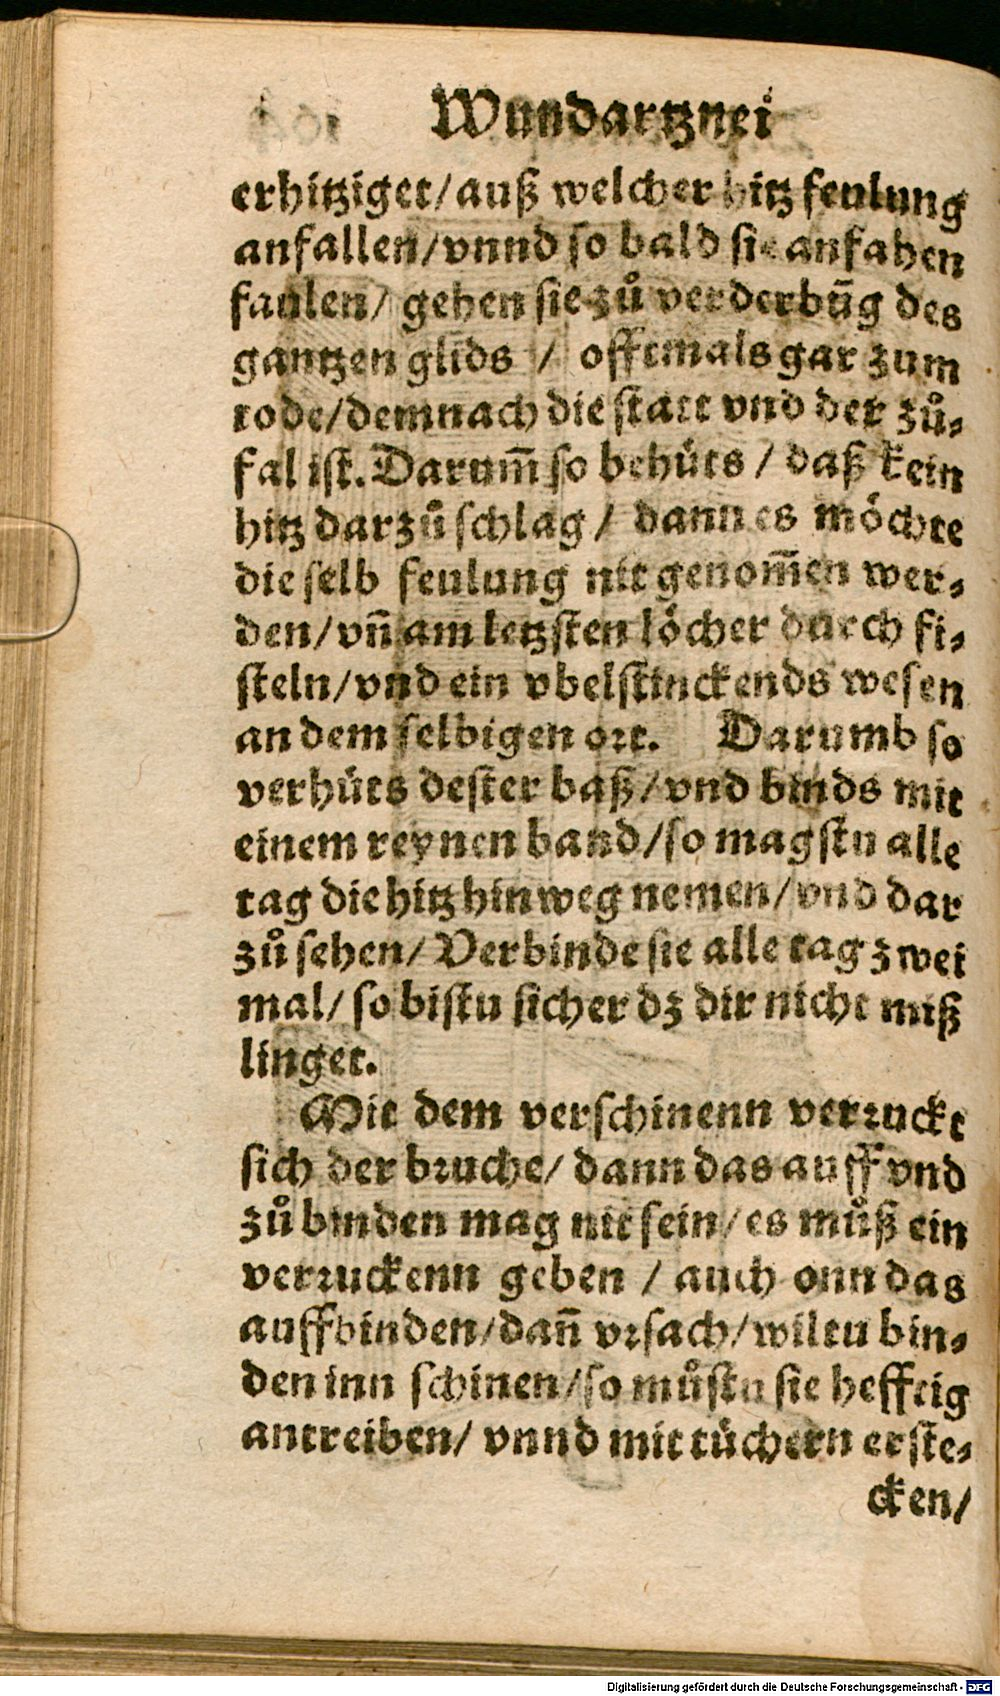 Wundartznei
erhitziget/auß welcher hitz feulung
anfallen/vnnd so bald sie anfahen
faulen/ gehen sie zů verderbũg des
gantzen glids / offtmals gar zum
tode/demnach die statt vnd der zů-
fal ist. Darum̃ so behüts / daß kein
hitz darzů schlag / dann es möchte
die selb feulung nit genom̃en wer-
den/vñ am letzsten löcher durch fi-
steln/vnd ein vbelstinckends wesen
an dem selbigen ort. Darumb so
verhüts dester baß/vnd binds mit
einem reynen band/so magstu alle
tag die hitz hinweg nemen/vnd dar
zů sehen/ Verbinde sie alle tag zwei
mal/ so bistu sicher dz dir nicht miß
linget.
Mit dem verschinenn verruckt
sich der bruche/ dann das auff vnd
zů binden mag nit sein/es můß ein
verruckenn geben / auch onn das
auffbinden/dañ vrsach/wiltu bin-
den inn schinen/so můstu sie hefftig
antreiben/ vnnd mit tüchern erste-
cken/
Digitalisierung gefördert durch die Deutsche Forschungsgemeinschaft - DFG